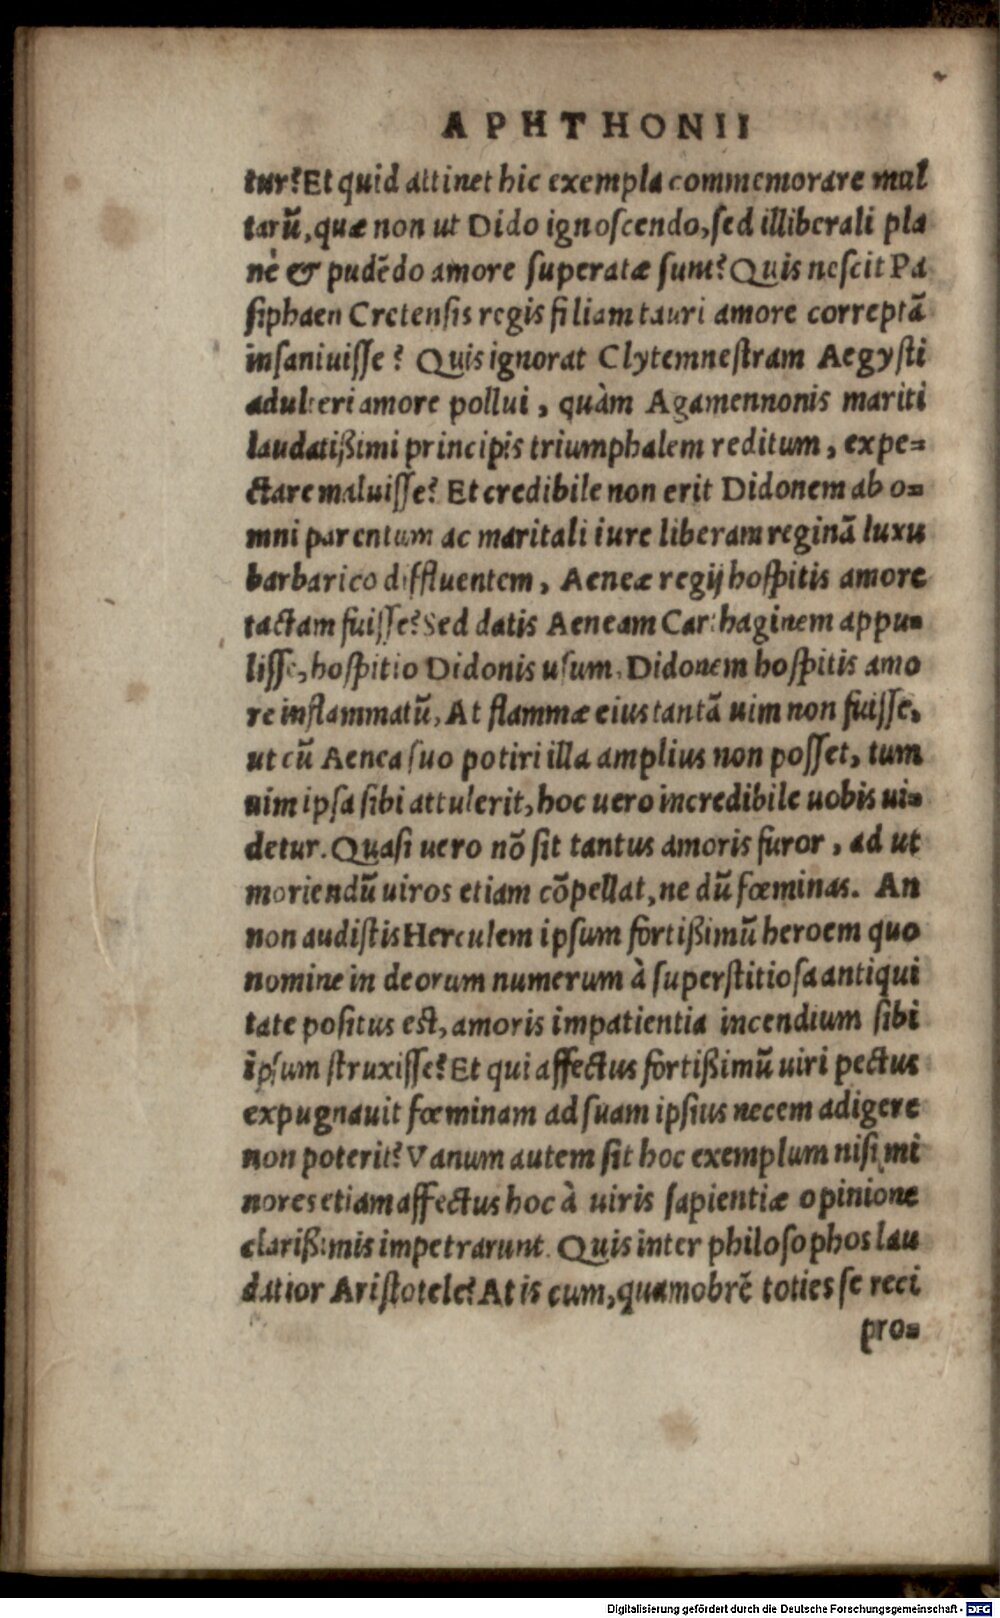 APHTHONII
tur? Et quid attinet hic exempla commemorare mul
tarū, quæ non ut Dido ignoscendo, sed illiberali pla
nè & pudēdo amore superatæ sunt? Quis nescit Pa
siphaen Cretensis regis filiam tauri amore correptā
insaniuisse? Quis ignorat Clytemnestram Aegysti
adulteri amore pollui, quàm Agamennonis mariti
laudatißimi principis triumphalem reditum, expe=
ctare maluisse? Et credibile non erit Didonem ab o=
mni parentum ac maritali iure liberam reginā luxu
barbarico diffluentem, Aeneæ regij hospitis amore
tactam fuisse? Sed datis Aeneam Carthaginem appu=
lisse, hospitio Didonis usum, Didonem hospitis amo
re inflammatū, At flammæ eius tantā uim non fuisse,
ut cū Aenea suo potiri illa amplius non posset, tum
uim ipsa sibi attulerit, hoc uero incredibile uobis ui=
detur. Quasi uero nō sit tantus amoris furor, ad ut
moriendū uiros etiam cōpellat, ne dū fœminas. An
non audistis Herculem ipsum fortißimū heroem quo
nomine in deorum numerum à superstitiosa antiqui
tate positus est, amoris impatientia incendium sibi
ipsum struxisse? Et qui affectus fortißimū uiri pectus
expugnauit fœminam ad suam ipsius necem adigere
non poterit? Vanum autem sit hoc exemplum nisi mi
nores etiam affectus hoc à uiris sapientiæ opinione
clarißimis impetrarunt. Quis inter philosophos lau
datior Aristotele? At is cum, quamobrē toties se reci
pro=
Digitalisierung gefördert durch die Deutsche Forschungsgemeinschaft - DFG